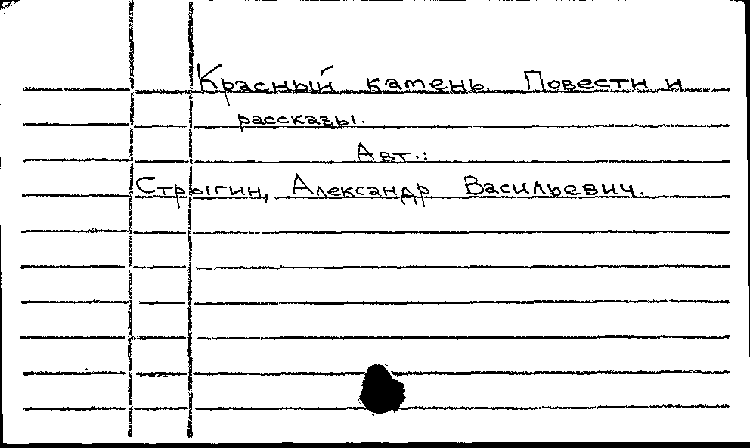 Красный камень. Повести и
рассказы.
Авт.:
Стрыгин, Александр Васильевич.